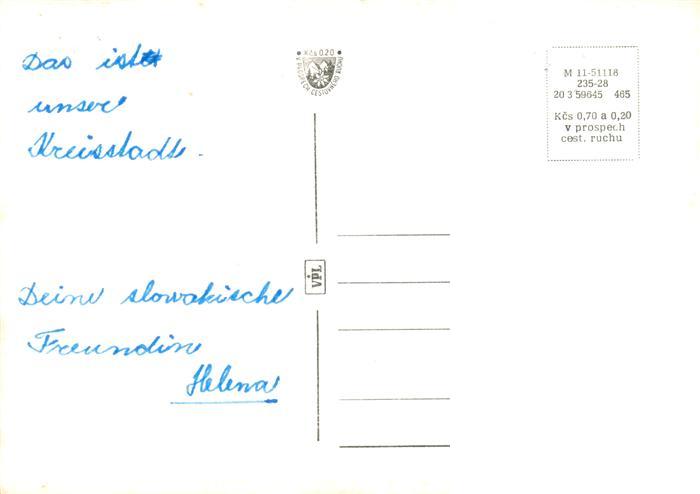 Das ist
unser
Kreisstadt.
Deine slowakische
Freundin
Helena
• Kčs 0.20 •
V PROSPECH CESTOVNÉHO RUCHU
VPL
M 11-51118
235-28
20 3 59645 465
Kčs 0,70 a 0,20
v prospech
cest. ruchu